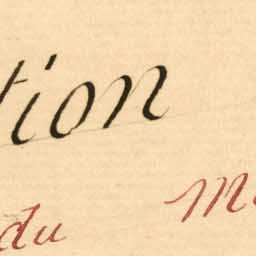 tion
du M